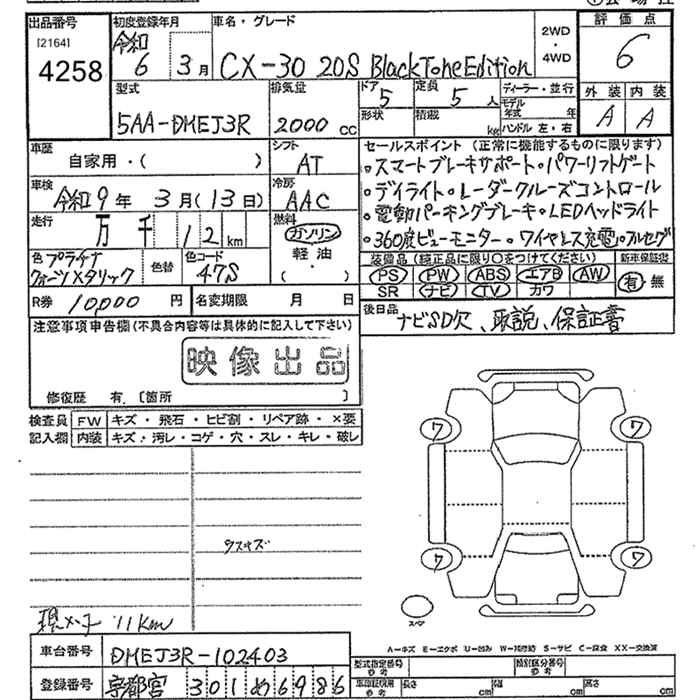 出品番号 初度登録年月 車名・グレード 2WD・4WD 評価点
[2164] 4258 令和6 3月 CX-30 20S BlackToneEdition 6
型式 排気量 ドア 5 定員 5人 ディーラー・並行 外装 内装
5AA-DMEJ3R 2000cc 形状 積載 kg モデル年式 年 ハンドル 左・右 A A
車歴 シフト セールスポイント (正常に機能するものに限ります)
自家用・( ) AT ・スマートブレーキサポート・パワーリフトゲート
車検 冷房 ・デイライト・レーダークルーズコントロール
令和9年3月(13日) AAC ・電動パーキングブレーキ・LEDヘッドライト
走行 万 千 12km 燃料 ガソリン ・360度ビューモニター・ワイヤレス充電・フルセグ
軽油・( )
色 プラチナクォーツメタリック 色替 色コード 47S
装備品 (純正品に限り○をつけてください) 新車保証書
PS PW ABS エアB AW 有・無
SR ナビ TV カワ
R券 10000円 名変期限 月 日
後日品 ナビSD欠、取説、保証書
注意事項申告欄(不具合内容等は具体的に記入して下さい)
映像出品
修復歴 有.[箇所 ]
検査員 FW キズ・飛石・ヒビ割・リペア跡・×要
記入欄 内装 キズ・汚レ・コゲ・穴・スレ・キレ・破レ
ワ ワ
ワスキズ
ワ ワ
スペア
現メーター 11Km
A=キズ E=エクボ U=凹み W=補修跡 S=サビ C=腐食 XX=交換済
車台番号 DMEJ3R-102403
型式指定番号 参考 類別区分番号 参考
登録番号 宇都宮 301 め 6986
車庫証明用 参考 長さ cm 幅 cm 高さ cm